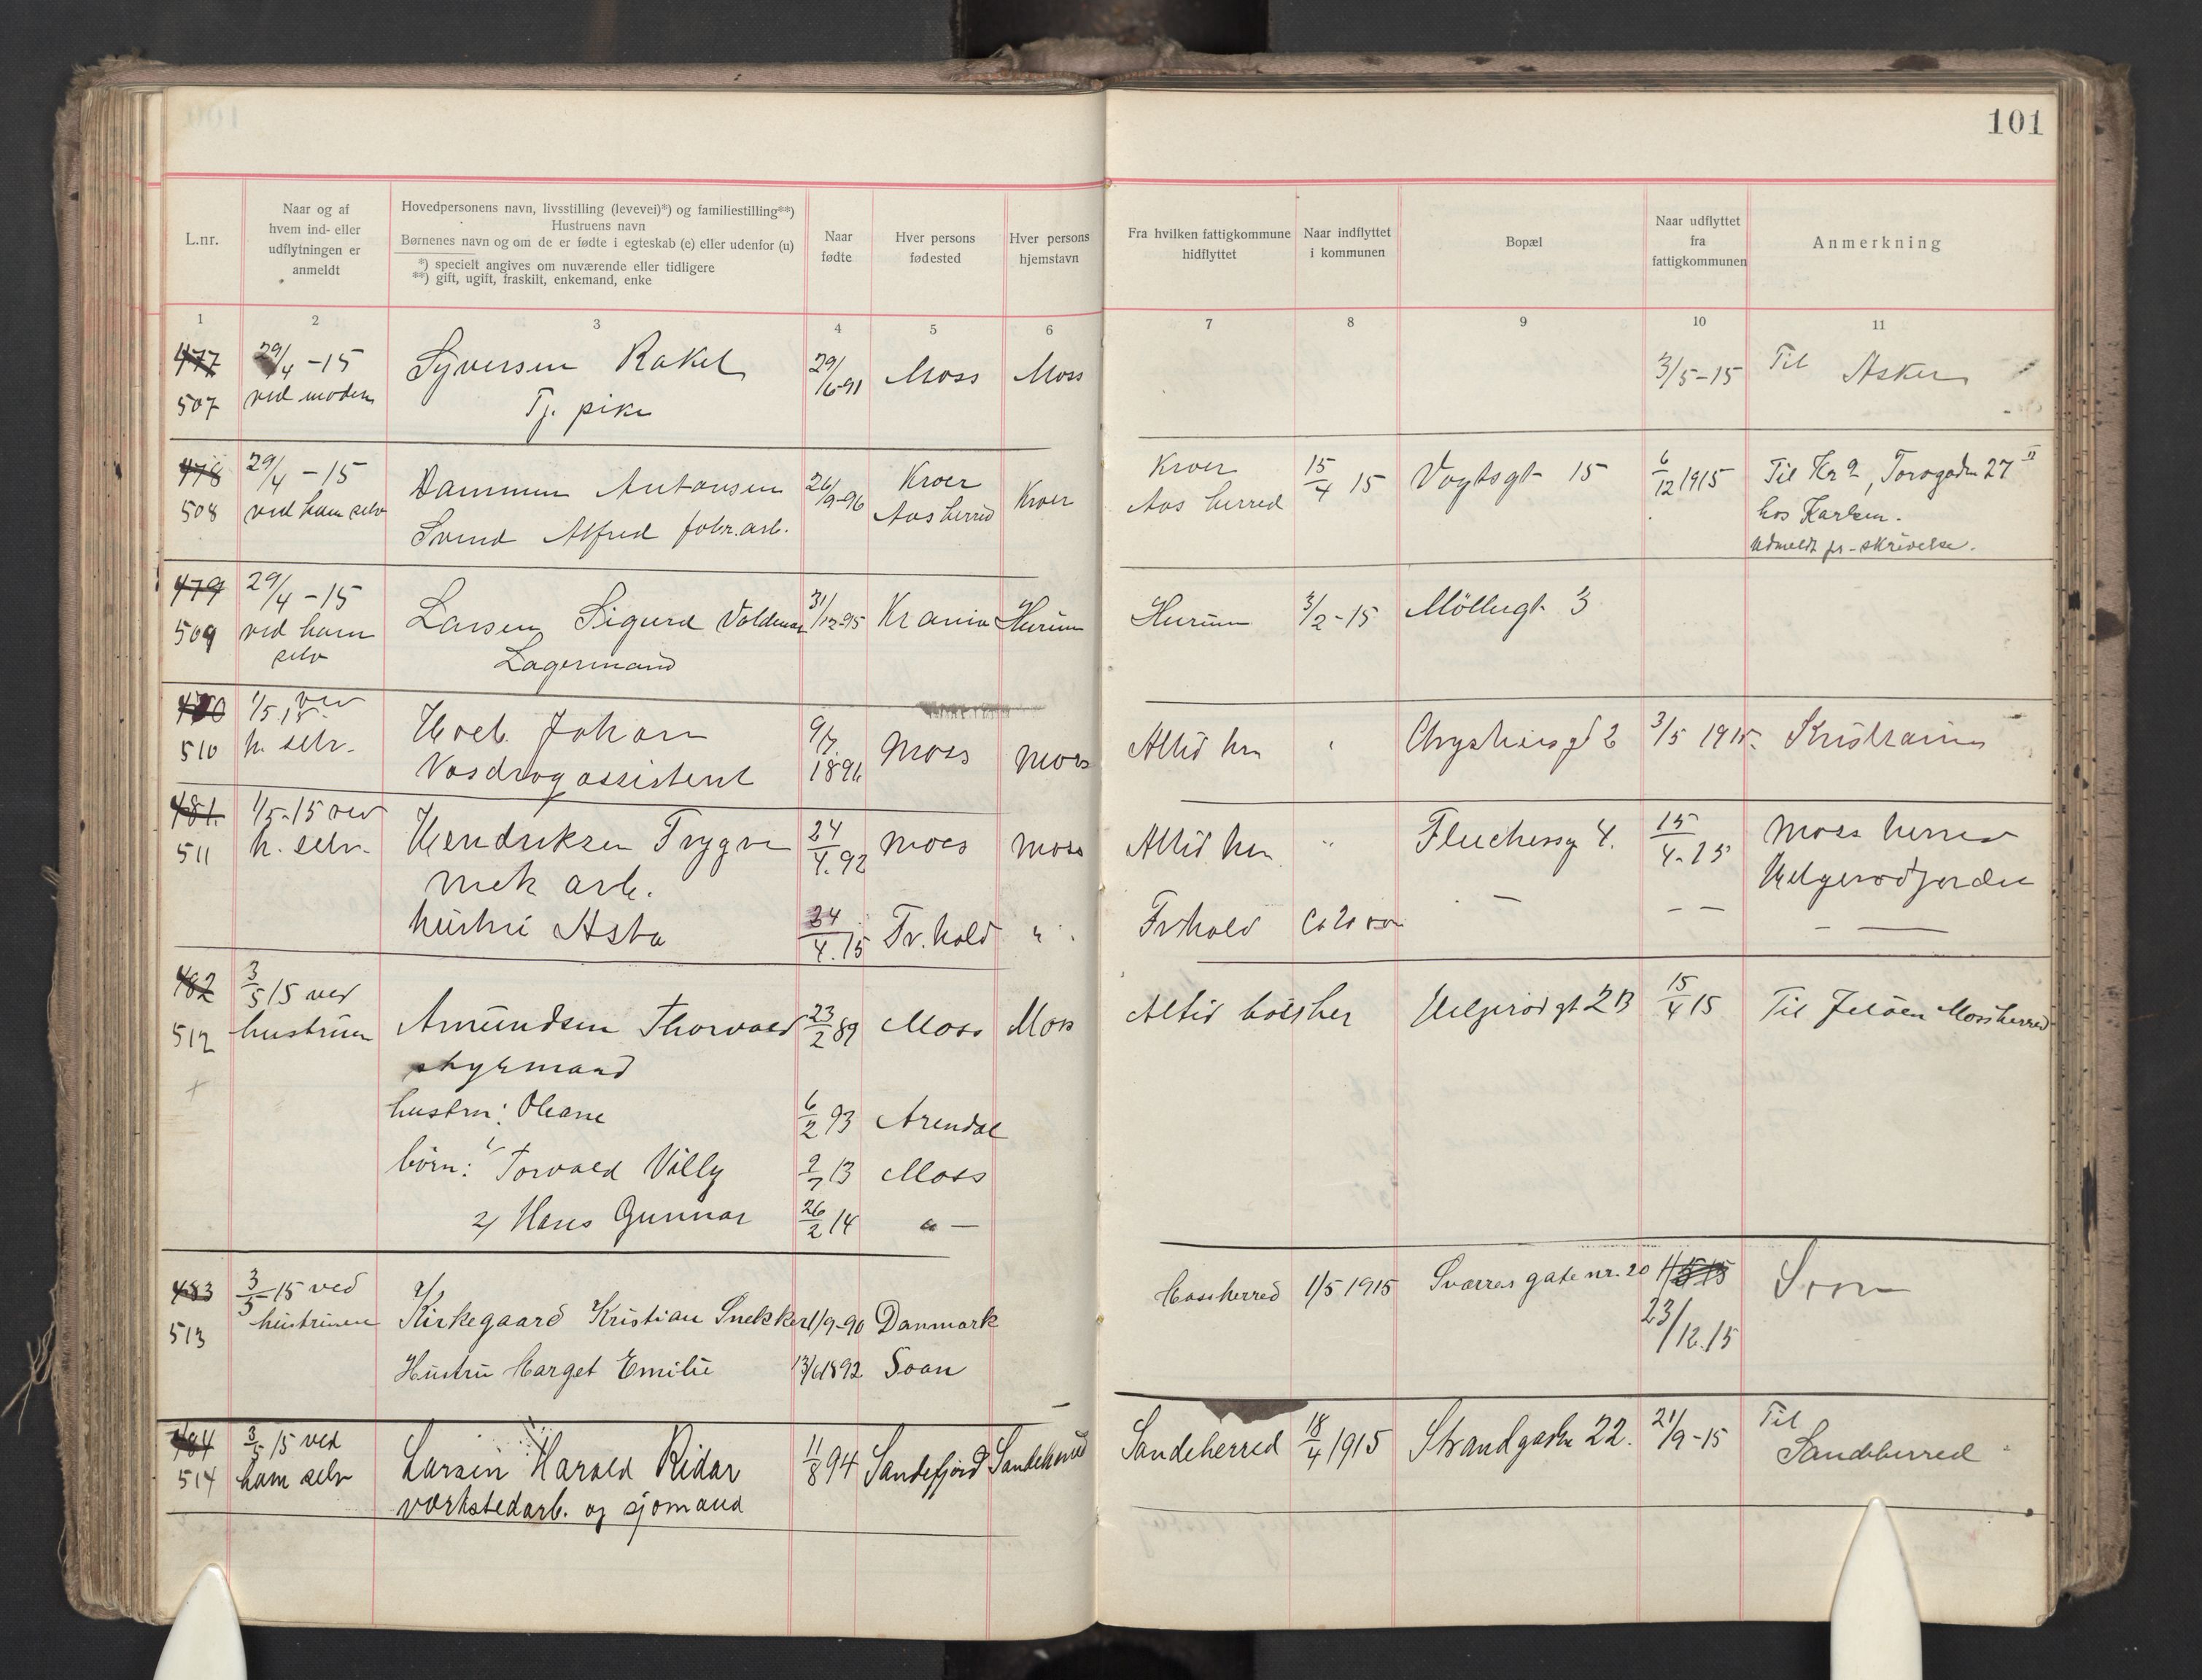 101
L.nr.
Naar og af
hvem ind- eller
udflytningen er
anmeldt
Hovedpersonens navn, livsstilling (levevei)*) og familiestilling**)
Hustruens navn
Børnenes navn og om de er fødte i egteskab (e) eller udenfor (u)
*) specielt angives om nuværende eller tidligere
**) gift, ugift, fraskilt, enkemand, enke
Naar
fødte
Hver persons
fødested
Hver persons
hjemstavn
Fra hvilken fattigkommune
hidflyttet
Naar indflyttet
i kommunen
Bopæl
Naar udflyttet
fra
fattigkommunen
Anmerkning
1 2 3 4 5 6 7 8 9 10 11
477 29/4 -15 Syversen Rakel 29/6-91 Moss Moss 3/5-15 Til Asker
507 ved moderen Tj. pike
478 29/4 -15 Dammen Antonsen 26/9-96 Kroer Kroer Kroer 15/4 15 Vogtsgt 15 6/12 1915 Til Kr a, Torvgaden 27 II
508 ved ham selv Svend Alfred fabr.arb. Aas herred Aas herred hos Karlsen.
Udmeldt pr. skrivelse.
479 29/4 -15 Larsen Sigurd Valdemar 31/12-95 Krania Hurum Hurum 3/2-15 Möllergt 3
509 ved ham Lagermand
selv
480 1/5.15 ved Hoel Johan 9/7. Moss Moss Altid her " 2 3/5 1915. Kristiania
510 h. selv. 1896
481. 1/5-15 ved Hendriksen Trygve 24/4.92 Moss Moss Altid her " 4. 15/4-15 Moss herred
511 h. selv. mek arb.
hustru Asta 24/4.15 Tr.hold " Tr hold — — — — —
482 3/5 15 ved Amundsen Thorvald 23/2 89 Moss Moss Altid boet her Helgerødgt 2B 15/4 15 Til Jeløen Mossherred
512 hustruen styrmand
hustru: Oleane 6/2 93 Arendal
børn: 1/ Torvald Villy 9/7 13 Moss
2/ Hans Gunnar 26/2 14 " —
483 3/5-15 ved Kirkegaard Kristian Snekker 1/9-90 Danmark Mossherred 1/5 1915 Sværres gate nr. 20 Son
513 hustruen 23/12.15
Hustru Marget Emilie 13/6 1892 Soon
484 3/5 15 ved Larsen Harald Ridar 11/8 94 Sandefjord Sandeherred Sandeherred 18/4 1915 Strandgaden 22. 21/9-15 Til
514 ham selv værkstedarb. og sjømand Sandeherred